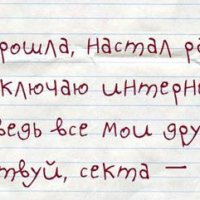 рошла, настал ра
ключаю интерне
ведь все мои дру
твуй, секта —